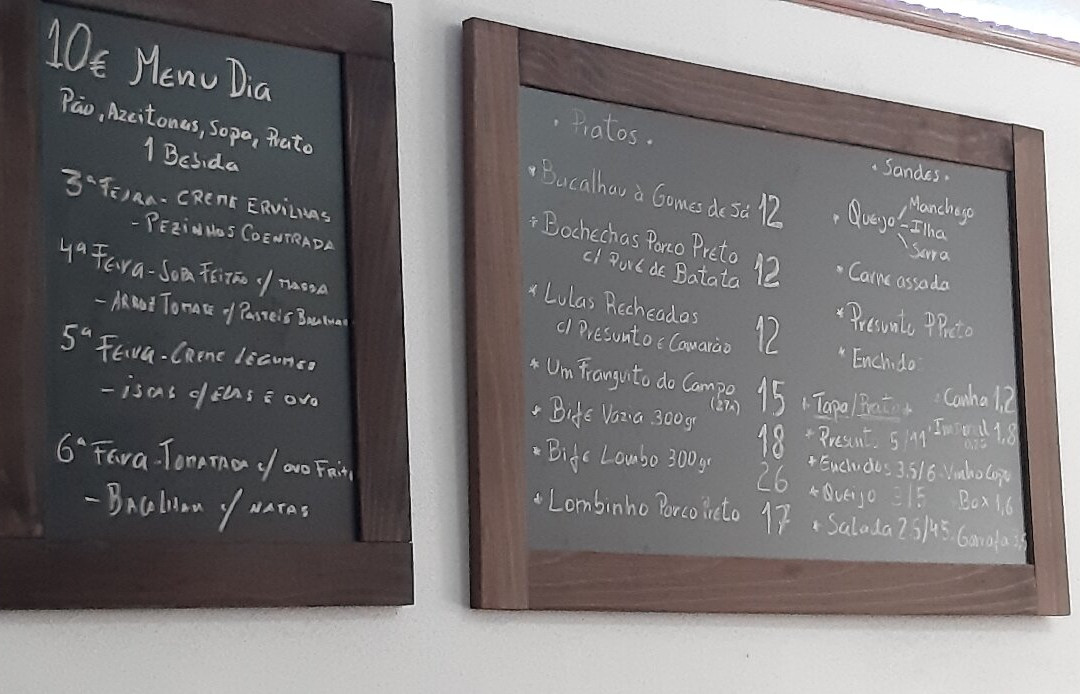 10€ Menu Dia
Pão, Azeitonas, Sopa, Prato
1 Bebida
3ª Feira - Creme Ervilhas
- Pezinhos Coentrada
4ª Feira - Sopa Feijão c/ massa
- Arroz Tomate c/ Pasteis Bacalhau
5ª
Feira - Creme Legumes
- iscas c/ Elas e ovo
6ª Feira - Tomatada c/ ovo Frito
- Bacalhau c/ natas
. Pratos .
* Bacalhau à Gomes de Sá 12
* Bochechas Porco Preto
c/ Puré de Batata 12
* Lulas Recheadas
c/ Presunto e Camarão 12
* Um Franguito do Campo 15
* Bife Vazia 300gr 18
* Bife Lombo 300gr 26
* Lombinho Porco Preto 17
. Sandes .
Manchego
* Queijo - Ilha
Serra
* Carne assada
* Presunto P Preto
* Enchido
* Tapa/Prato *
* Presunt 5/11
* Enchidos 3.5/6
* Queijo 3/5
* Salada 2.5/4.5
Canha 1,2
Imperial 1,8
Vinho Copo
Box 1,6
Garafa